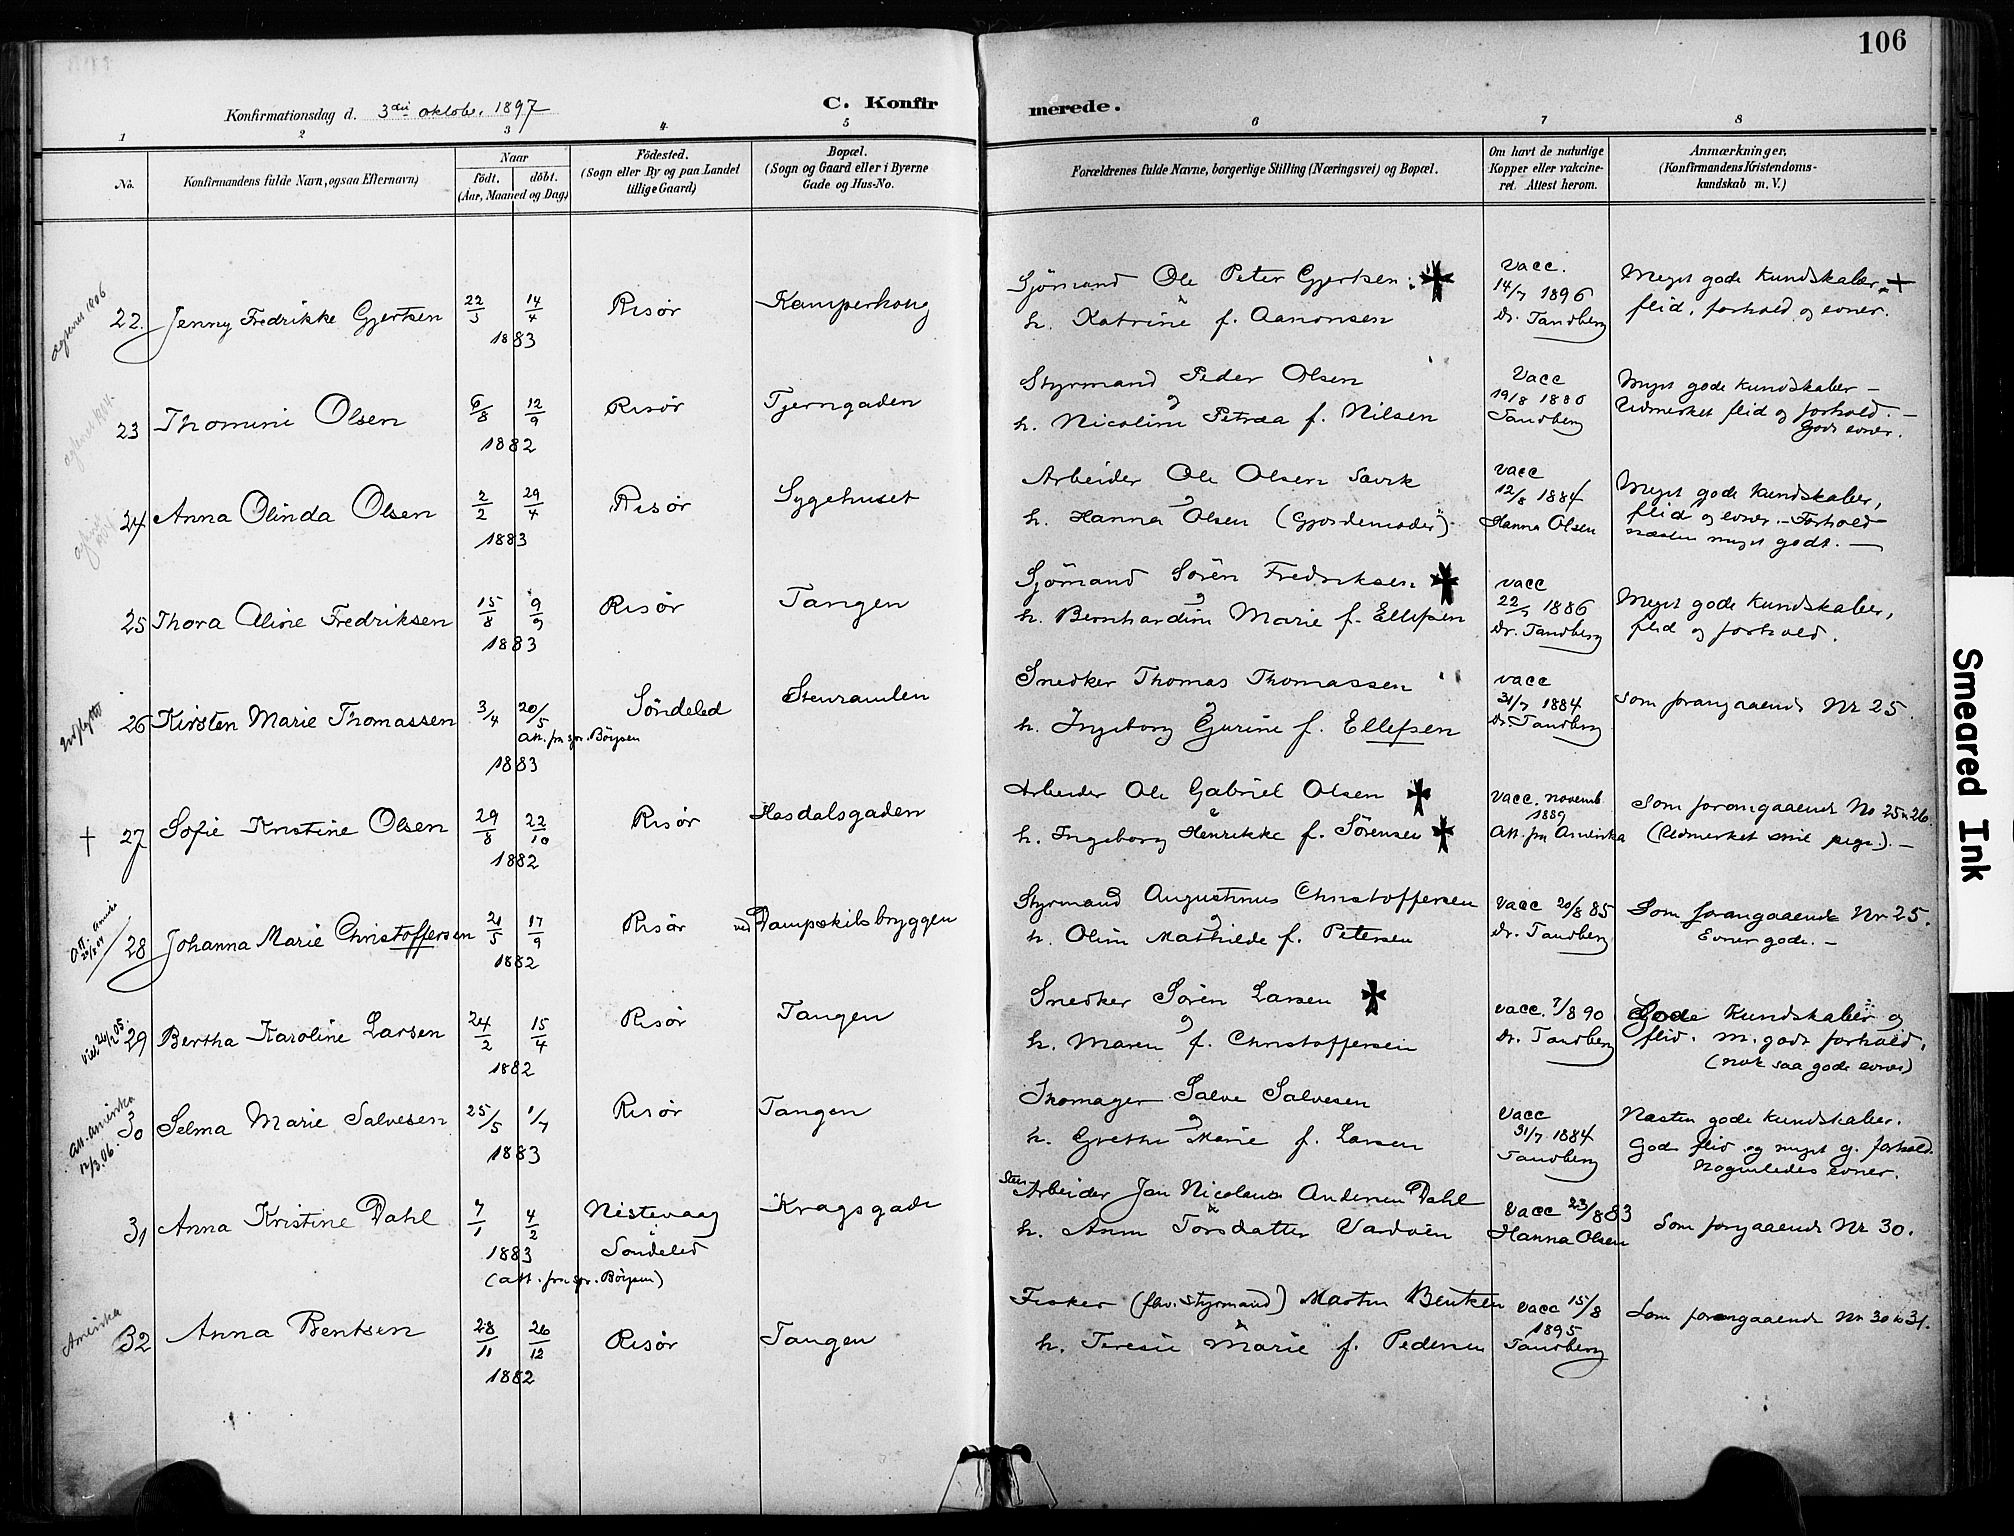 106
Konfirmationsdag d. 3die oktober 1897
C. Konfirmerede.
1 2 3 4 5 6 7 8
No.
Konfirmandens fulde Navn, ogsaa Efternavn)
Naar
født. døbt.
(Aar, Maaned og Dag)
Födested.
(Sogn eller By og paa Landet
tillige Gaard)
Bopæl.
(Sogn og Gaard eller i Byerne
Gade og Hus-No.
Forældrenes fulde Navne, borgerlige Stilling (Næringsvei) og Bopæl.
Om havt de naturlige
Kopper eller vakcine-
ret. Attest herom.
Anmærkninger,
(Konfirmandens Kristendoms-
kundskab m. V.)
22. Jenny Fredrikke Gjertsen 22/3 14/4 1883 Risør Kamperhoug
Sjömand Ole Peter Gjertsen
h. Katrine f. Aanonsen
Vacc.
14/7 1896
Dr. Tandberg
Meget gode kundskaber
flid, forhold og evner.
23 Thomine Olsen 6/8 12/9 1882 Risør Tjerngaden
Styrmand Peder Olsen
h. Nicoline Petrea f. Nilsen
Vacc
19/8 1886
Tandberg
Meget gode kundskaber –
Udmerket flid og forhold. –
Gode evner.
24 Anna Olinda Olsen 2/2 29/4 1883 Risør Sygehuset
Arbeider Ole Olsen
h. Hanna Olsen (Gjordemoder)
vacc
12/8 1884
Hanna Olsen
Meget gode kundskaber,
flid og evner. – Forhold
næsten meget godt. –
25 Thora Aline Fredriksen 15/8 9/9 1883 Risør Tangen
Sjömand Sören Fredriksen
h. Bernhardine Marie f. Ellefsen
vacc
1886
Dr. Tandberg
Meget gode kundskaber,
flid og forhold.
26 Kirsten Marie Thomassen 3/4 20/5 1883 Söndeled Stenramlen
Att. fra spr. Börjsen
Snedker Thomas Thomassen
h. Ingeborg Gurine f. Ellefsen
vacc
31/7 1884
Dr. Tandberg
Som forangaaende Nr 25.
† 27 Sofie Kristine Olsen 29/8 22/10 1882 Risør Hasdalsgaden
Arbeider Ole Gabriel Olsen
h. Ingeborg Henrikke f. Sörensen
Vacc. novemb
1889
Att. fra Amerika
Som forangaaende No 25 & 26.
(Udmerket snil pige.) –
28 Johanna Marie Christoffersen 21/5 17/9 1882 Risør ved Dampskibsbryggen
Styrmand Augustinus Christoffersen
h. Oline Mathilde f. Petersen
vacc 20/8 85
Dr. Tandberg
Som forangaaende Nr 25.
Evner gode. –
29 Bertha Karoline Larsen 24/2 15/4 1882 Risør Tangen
Snedker Sören Larsen
h. Maren f. Christoffersen
vacc. 7/8 90
Dr. Tandberg
Gode kundskaber og
flid. m. godt forhold.
(nok saa gode evner)
Att. Amerika
12/3.06
30 Selma Marie Salvesen 25/5 1/7 1883 Risør Tangen
Salve Salvesen
h. Grethe Marie f. Larsen
Vacc
31/7 1884
Tandberg
Næsten gode kundskaber.
God flid og meget g. forhold
Nogenledes evner.
31 Anna Kristine Dahl 7/1 4/2 1883
(att. fra spr. Börjsen)
Nistevaag
i
Söndeled
Kragsgade
Arbeider Jan Nicolaus Andersen Dahl
h. Anne Torsdatter
Vacc 23/8 83
Hanna Olsen
Som forgaaende Nr 30.
Amerika
32 Anna Bentsen 28/11 26/12 1882 Risør Tangen
Fisker (fhv. styrmand) Martin Bentsen
h. Teresie Marie f. Pedersen
Vacc 15/8
1895
Tandberg
Som forangaaende Nr 30 & 31.
Smeared Ink